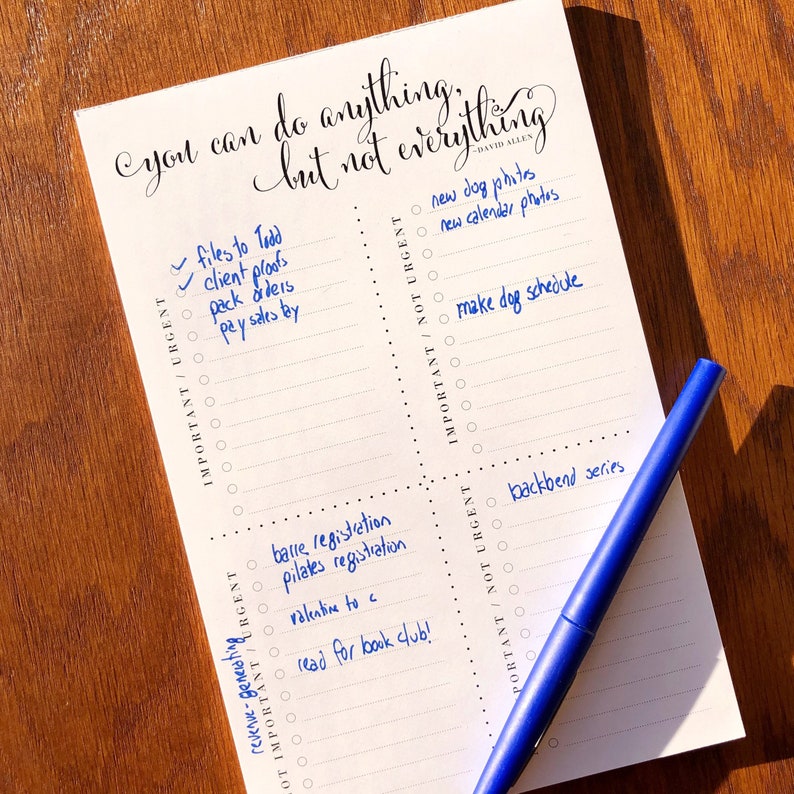 you can do anything,
but not everything
-DAVID ALLEN
IMPORTANT / URGENT
✓ files to Todd
✓ client proofs
pack orders
pay sales tax
IMPORTANT / NOT URGENT
new dog photos
new calendar photos
make dog schedule
revenue-generating
NOT IMPORTANT / URGENT
barre registration
pilates registration
valentine to c
read for book club!
PORTANT / NOT URGENT
backbend series